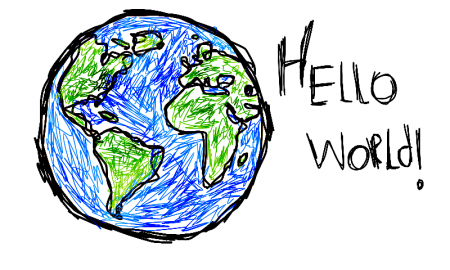 HELLO
WORLd!